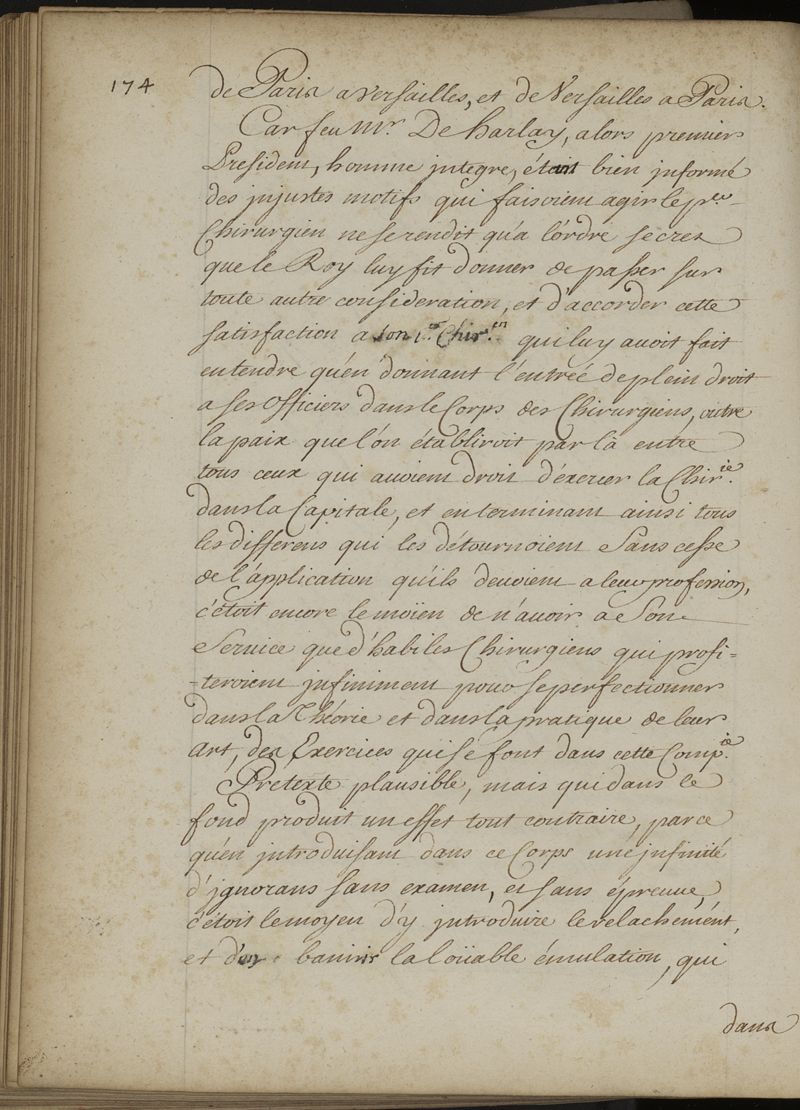 174
de Paris a versailles, et de Versailles a Paris.
Car feu Mr. De harlay, alors premier
President, homme integre, étant bien informé
des injustes motifs qui faisoient agir le per
Chirurgien ne se rendit qu'a l'ordre secret
que le Roy luy fit donner de passer sur
toute autre consideration, et d'accorder cette
satisfaction a son 1er. Chir.en qui luy avoit fait
entendre qu'en donnant l'entrée de plein droit
a ses officiers dans le Corps des Chirurgiens, outre
la paix que l'on établiroit par là entre
tous ceux qui avoient droit d'exercer la Chir.ie
dans la Capitale, et en terminant ainsi tous
les differens qui les détournoient sans cesse
de l'application qu'ils devoient a leur profession,
c'étoit encore le moïen de n'avoir a son
Service que d'habiles Chirurgiens qui profi-
-teroient infiniment pour se perfectionner
dans la Théorie et dans la pratique de leur
Art, des Exercices qui se font dans cette Comp.ie
Pretexte plausible, mais qui dans le
fond produit un effet tout contraire, parce
qu'en introduisant dans ce Corps une infinité
d'ignorans sans examen, et sans épreuve,
c'étoit le moyen d'y introduire le relachement,
et d'en bannir la loüable émulation, qui
dans